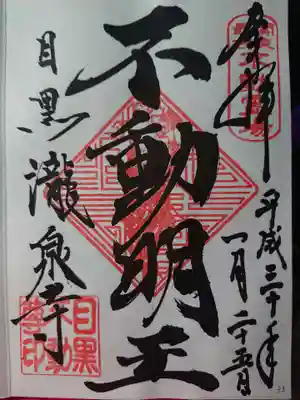 奉拝
平成三十年
一月二十五日
不動明王
目黒瀧泉寺
目黒
不動
尊印
33